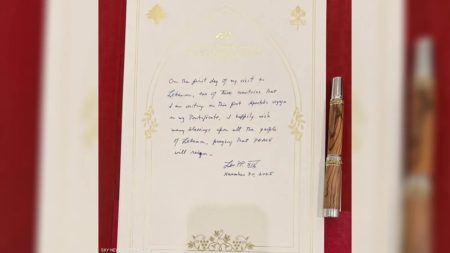 On the first day of my visit to
Lebanon, one of two countries that
I am visiting on this first Apostolic Voyage
in my Pontificate, I happily wish
many blessings upon all the people
of Lebanon, praying that peace
will reign.
Leo PP. XIV
November 30, 2025
SKY NEWS